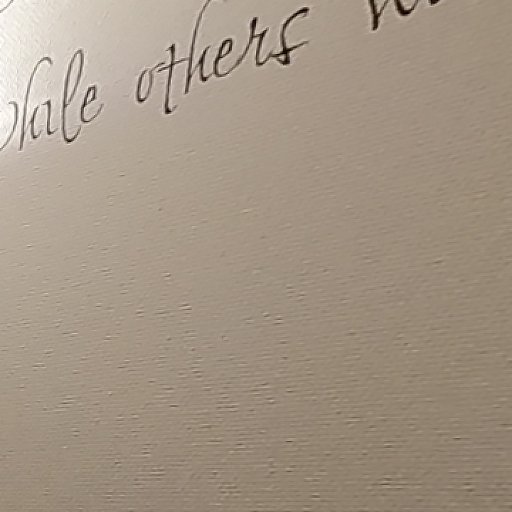 while others